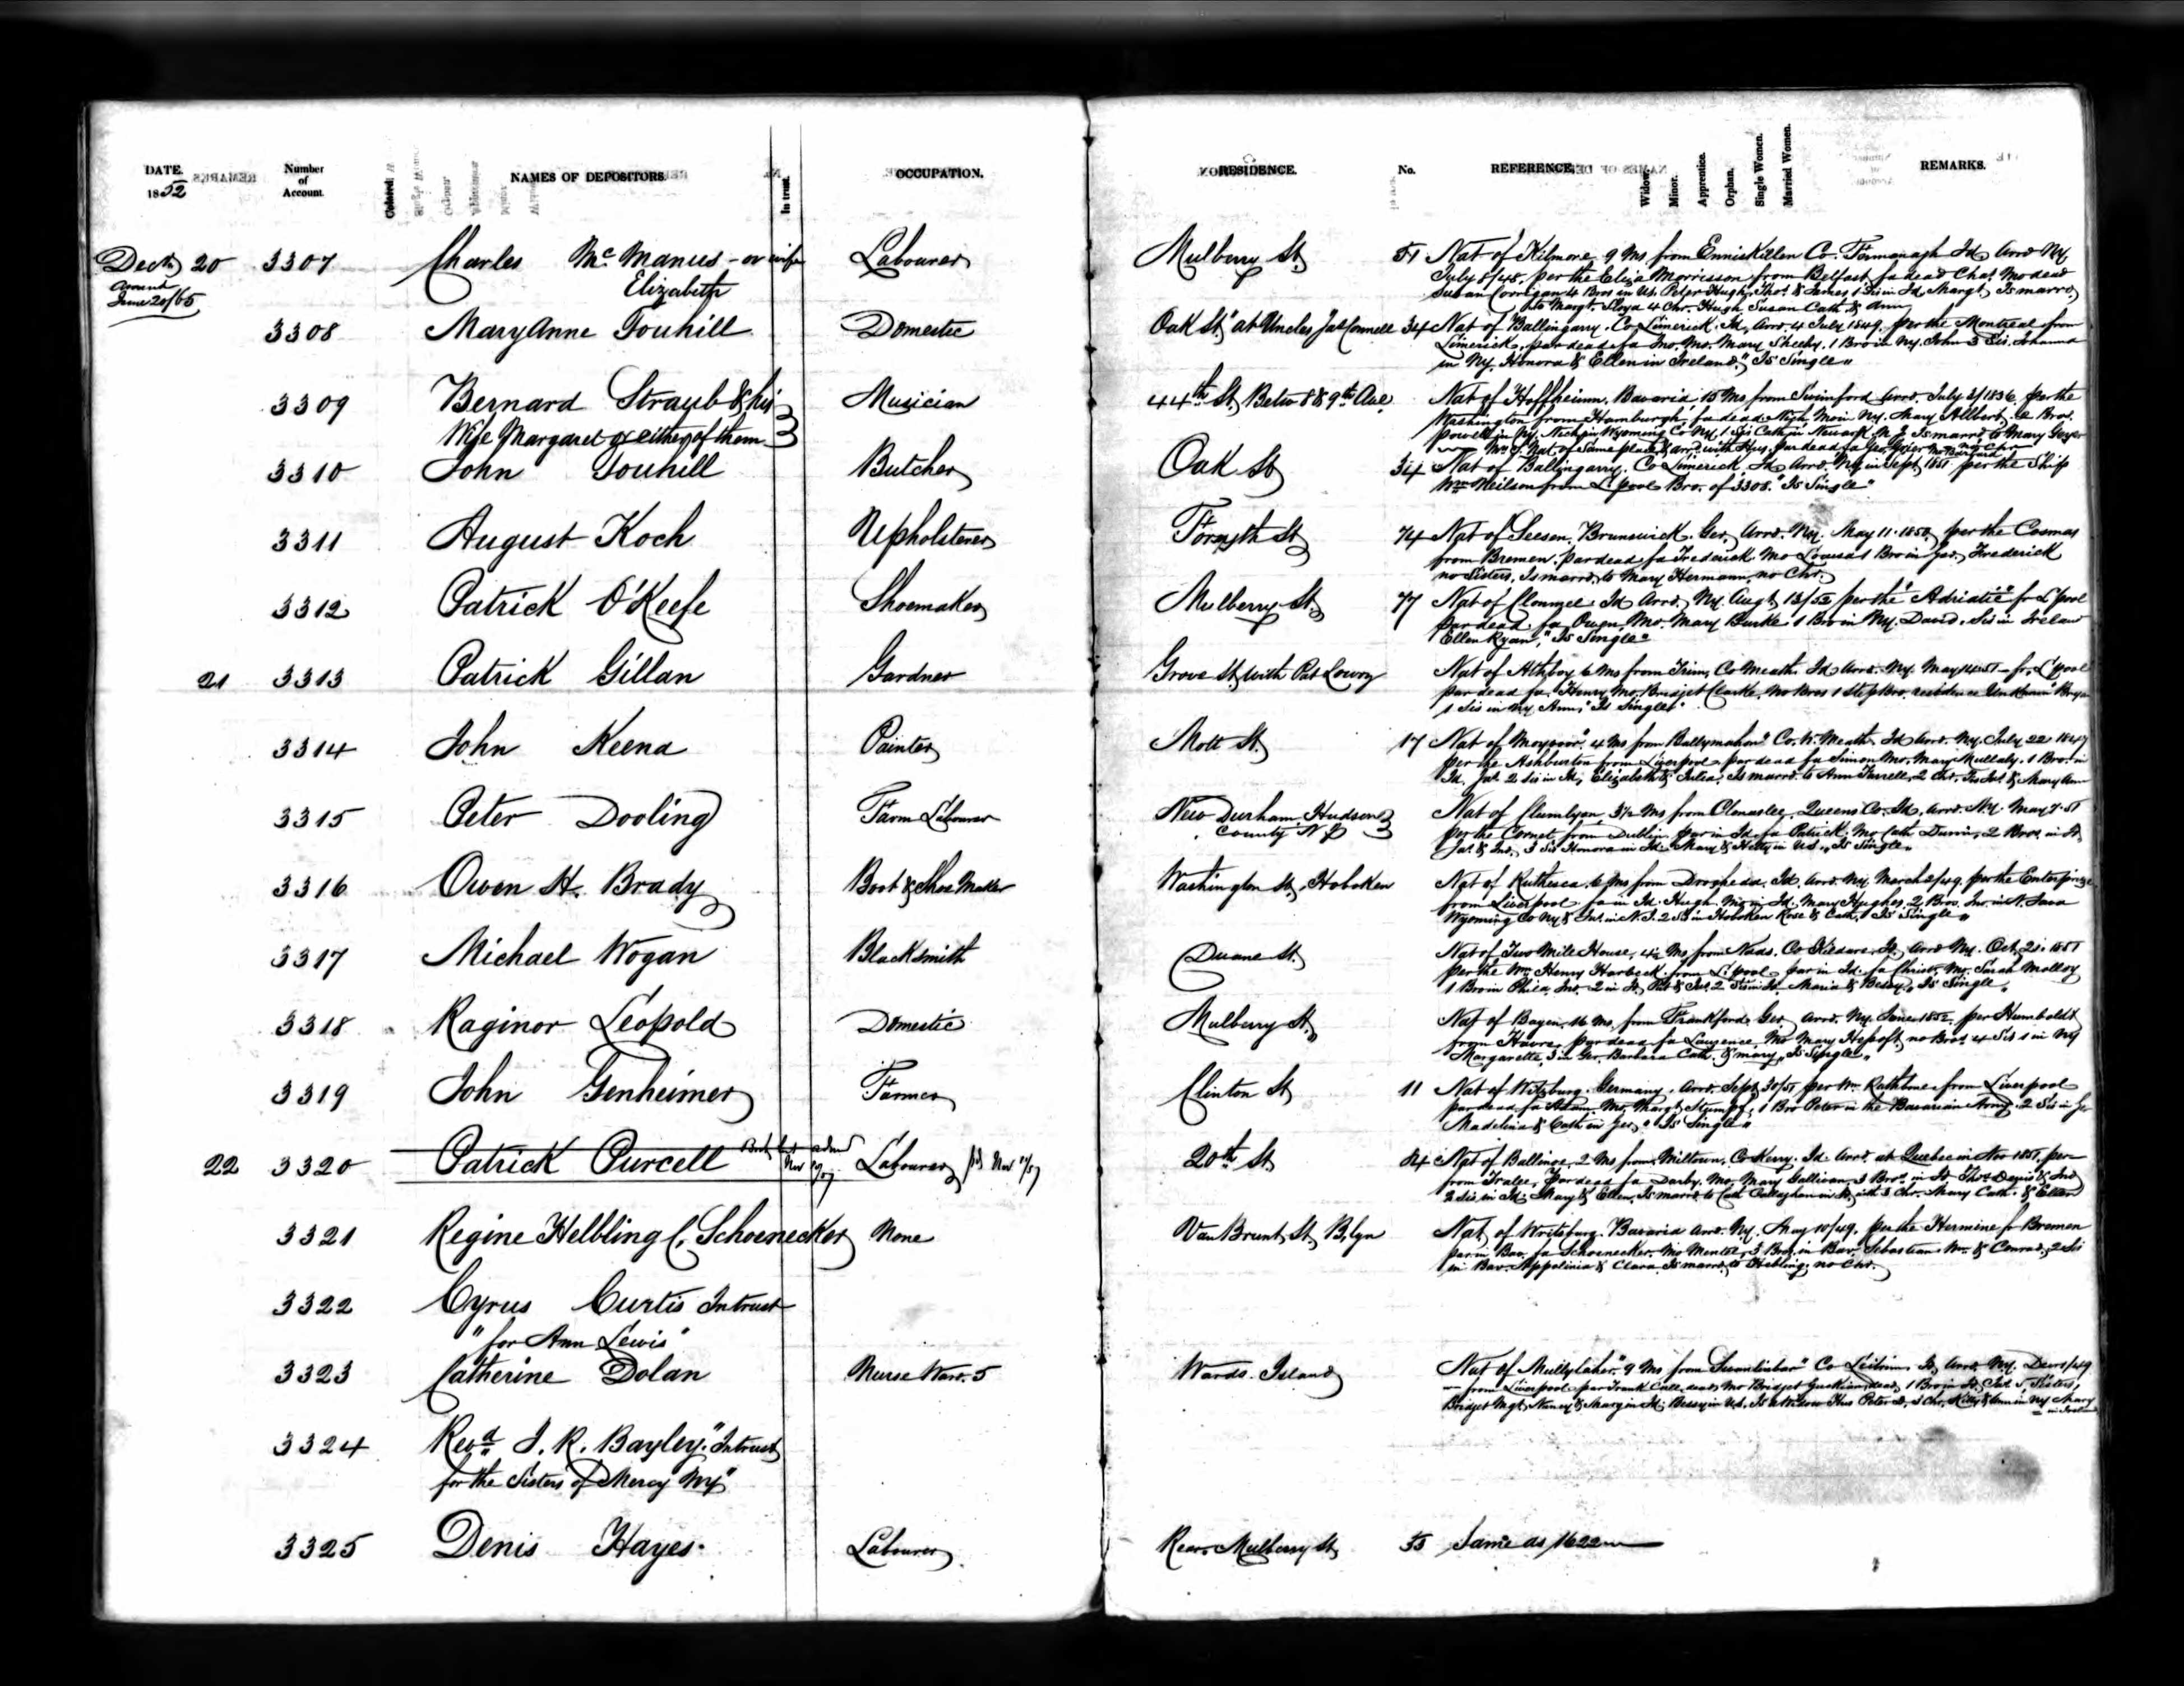 DATE. Number of Account. NAMES OF DEPOSITORS. In trust. OCCUPATION. RESIDENCE. No. REFERENCE. Widow. Minor. Apprentice. Orphan. Single Women. Married Women. REMARKS.
1852
Decr 20 3307 Charles McManus - or wife Labourer Mulberry St. 51 Nat of Kilmore 9 Ms from Enniskillen Co. Fermanagh Id Arrd NY
June 20/65 Elizabeth July 8/48, per the Eliza Morrisson from Belfast fa dead Chas. Mo dead
Susan Corrigan 4 Bros in US. Peter Hugh, Thos. & James 1 Sis in Id, Margt. Is marrd
to Margt. Lloyd 4 Chr. Hugh Susan Cath & Ann
3308 Mary Anne Touhill Domestic Oak St. "at Uncles Jas Connell 34 Nat of Ballingarry. Co Limerick. Id, Arrd. 4 July 1849, per the Montreal from
Limerick, par dead fa Jno. Mo. Mary Sheehy. 1 Bro in NY. John 3 Sis. Johanna
in NY. Honora & Ellen in Ireland, "Is Single"
3309 Bernard Straub & his Musician 44th St. Betw 8 & 9th Ave. Nat of Hoffheimn, Bavaria 15 Ms from Swinford Arrd. July 2/1836, per the
Wife Margaret or either of them Washington from Hamburgh, fa dead Mo in NY. Mary Allbert, 2 Bros.
in NY. Nich in Wyoming Co NY, 1 Sis Cath in Newark N J. Is marrd to Mary Geyer
Nat. of Same place, arrd with Hus. par dead fa Geo. Geyer
3310 John Touhill Butcher Oak St 34 Nat of Ballingarry. Co Limerick Id Arrd. NY in Sept 1851 per the Ship
Wm Neilson from L'pool Bro. of 3308. "Is Single"
3311 August Koch Upholsterer Forsyth St 74 Nat of Seesen. Brunswick. Ger. Arrd. NY. May 11. 1850, per the Cosmas
from Bremen. par dead fa Frederick. Mo Louisa 1 Bro in Ger. Frederick
no Sisters. Is marrd. to Mary Hermann, no Chr.
3312 Patrick O'Keefe Shoemaker Mulberry St. 77 Nat of Clonmel Id Arrd. NY. Augt 13/52 per the "Adriatic" fr L'pool
Par dead. fa Owen, Mo. Mary Burke. 1 Bro in NY. David. Sis in Ireland
Ellen Ryan, "Is Single"
21 3313 Patrick Gillan Gardner Grove St. with Pat Lowry Nat of Athboy 6 Ms from Trim, Co Meath. Id Arrd. NY. May 14. 51 - fr. L'pool
par dead fa. Henry, Mo. Bridget Clarke, No Bros 1 Step Bro. residence Unknown Bryan
1 Sis in NY Ann, "Is Single".
3314 John Keena Painter Mott St. 17 Nat of Moyvore, 4 Ms from Ballymahon Co. W. Meath Id Arrd. NY. July 22 1847
per the Ashburton from Liverpool par dead fa Simon Mo. Mary Mullaly. 1 Bro. in
Id. Jas. 2 Sis in Id, Elizabeth & Julia. Is marrd. to Ann Farrell, 2 Chr. & Mary Ann
3315 Peter Dooling Farm Labourer New Durham, Hudson Nat of 3½ Ms from Clonaslee, Queens Co. Id, Arrd. NY. May 7. 51
County N J per the Cornet, from Dublin par in Id fa Patrick, Mo Cath Dunn, 2 Bros. in Id
Jas. & Jno. 3 Sis Honora in Id. Mary & in US. "Is Single"
3316 Owen H. Brady Boot & Shoe Maker Washington St., Hoboken Nat of 6 Ms from Drogheda. Id. Arrd. NY March 2/49. per the Enterprize
from Liverpool. fa in Id. Hugh. Mo in Id. Mary Hughes. 2 Bros. Jno. in N. Java
Wyoming Co NY & in N. J. 2 Sis in Hoboken Rose & Cath, "Is Single"
3317 Michael Wogan Blacksmith Duane St. Nat of Two Mile House, 4½ Ms from Naas. Co Kildare, Id, Arrd NY. Oct. 21. 1851
per the Wm Henry Harbeck from L'pool par in Id. fa Christ. Mo. Sarah Molloy
1 Bro in Phila. Jno. 2 in Id. Pat & Jas. 2 Sis in Id. Maria & Betsy. "Is Single"
3318 Raginor Leopold Domestic Mulberry St. Nat of Bayen, 16 Ms from Frankford. Ger. Arrd. NY. June 1852. per Humboldt
from Havre, par dead fa Laurence, Mo Mary no Bros. 4 Sis 1 in NY
Margarette, 3 in Ger. Barbara Cath. & Mary, "Is Single"
3319 John Genheimer Farmer Clinton St 11 Nat of Witzburg. Germany. Arrd. Sept 30/51 per Wm Rathbone from Liverpool
par dead. fa Adam, Mo. Margt. Stumpf, 1 Bro Peter in the Bavarian Army. 2 Sis in Ger
Madelina & Cath in Ger, "Is Single"
22 3320 Patrick Purcell Labourer 20th St 84 Nat of Ballinoe, 2 Ms from Miltown. Co Kerry. Id Arrd. at Quebec in Nov 1851. per
from Tralee, Par dead fa Darby. Mo. Mary Sullivan. 3 Bros. in Id Thos. Denis & Jno
2 Sis in Id. Mary & Ellen, Is marrd to Cath Callaghan in Id, with 3 Chr. Mary Cath. & Ellen
3321 Regine Helbling C. Schoenecker None Van Brunt St, B'lyn Nat of Writsburg. Bavaria Arrd. NY. May 10/49, per the Hermine fr Bremen
par in Bav. fa Schoenecker. Mo 3 Bros. in Bav. Sebastian. Wm. & Conrad, 2 Sis
in Bav. Appolinia & Clara Is marrd. to Helbling. no Chr.
3322 Cyrus Curtis In trust
"for Ann Lewis"
3323 Catherine Dolan Nurse Ward. 5 Wards. Island Nat of 9 Ms from Swanlinbar" Co Leitrim. Id, Arrd. NY.
from Liverpool par Frank Call. dead. Mo Bridget dead, 1 Bro in Id, Jas. 5 Sisters,
Bridget Mgt. Nancy & Mary in Id; Bessy in US. Is a Widow Hus Peter D. 3 Chr. Kitty & Ann in NY Mary
in Ireland
3324 Revd J. R. Bayley. "Intrust
for the Sisters of Mercy NY"
3325 Denis Hayes. Labourer Rear. Mulberry St. 35 Same as 1622